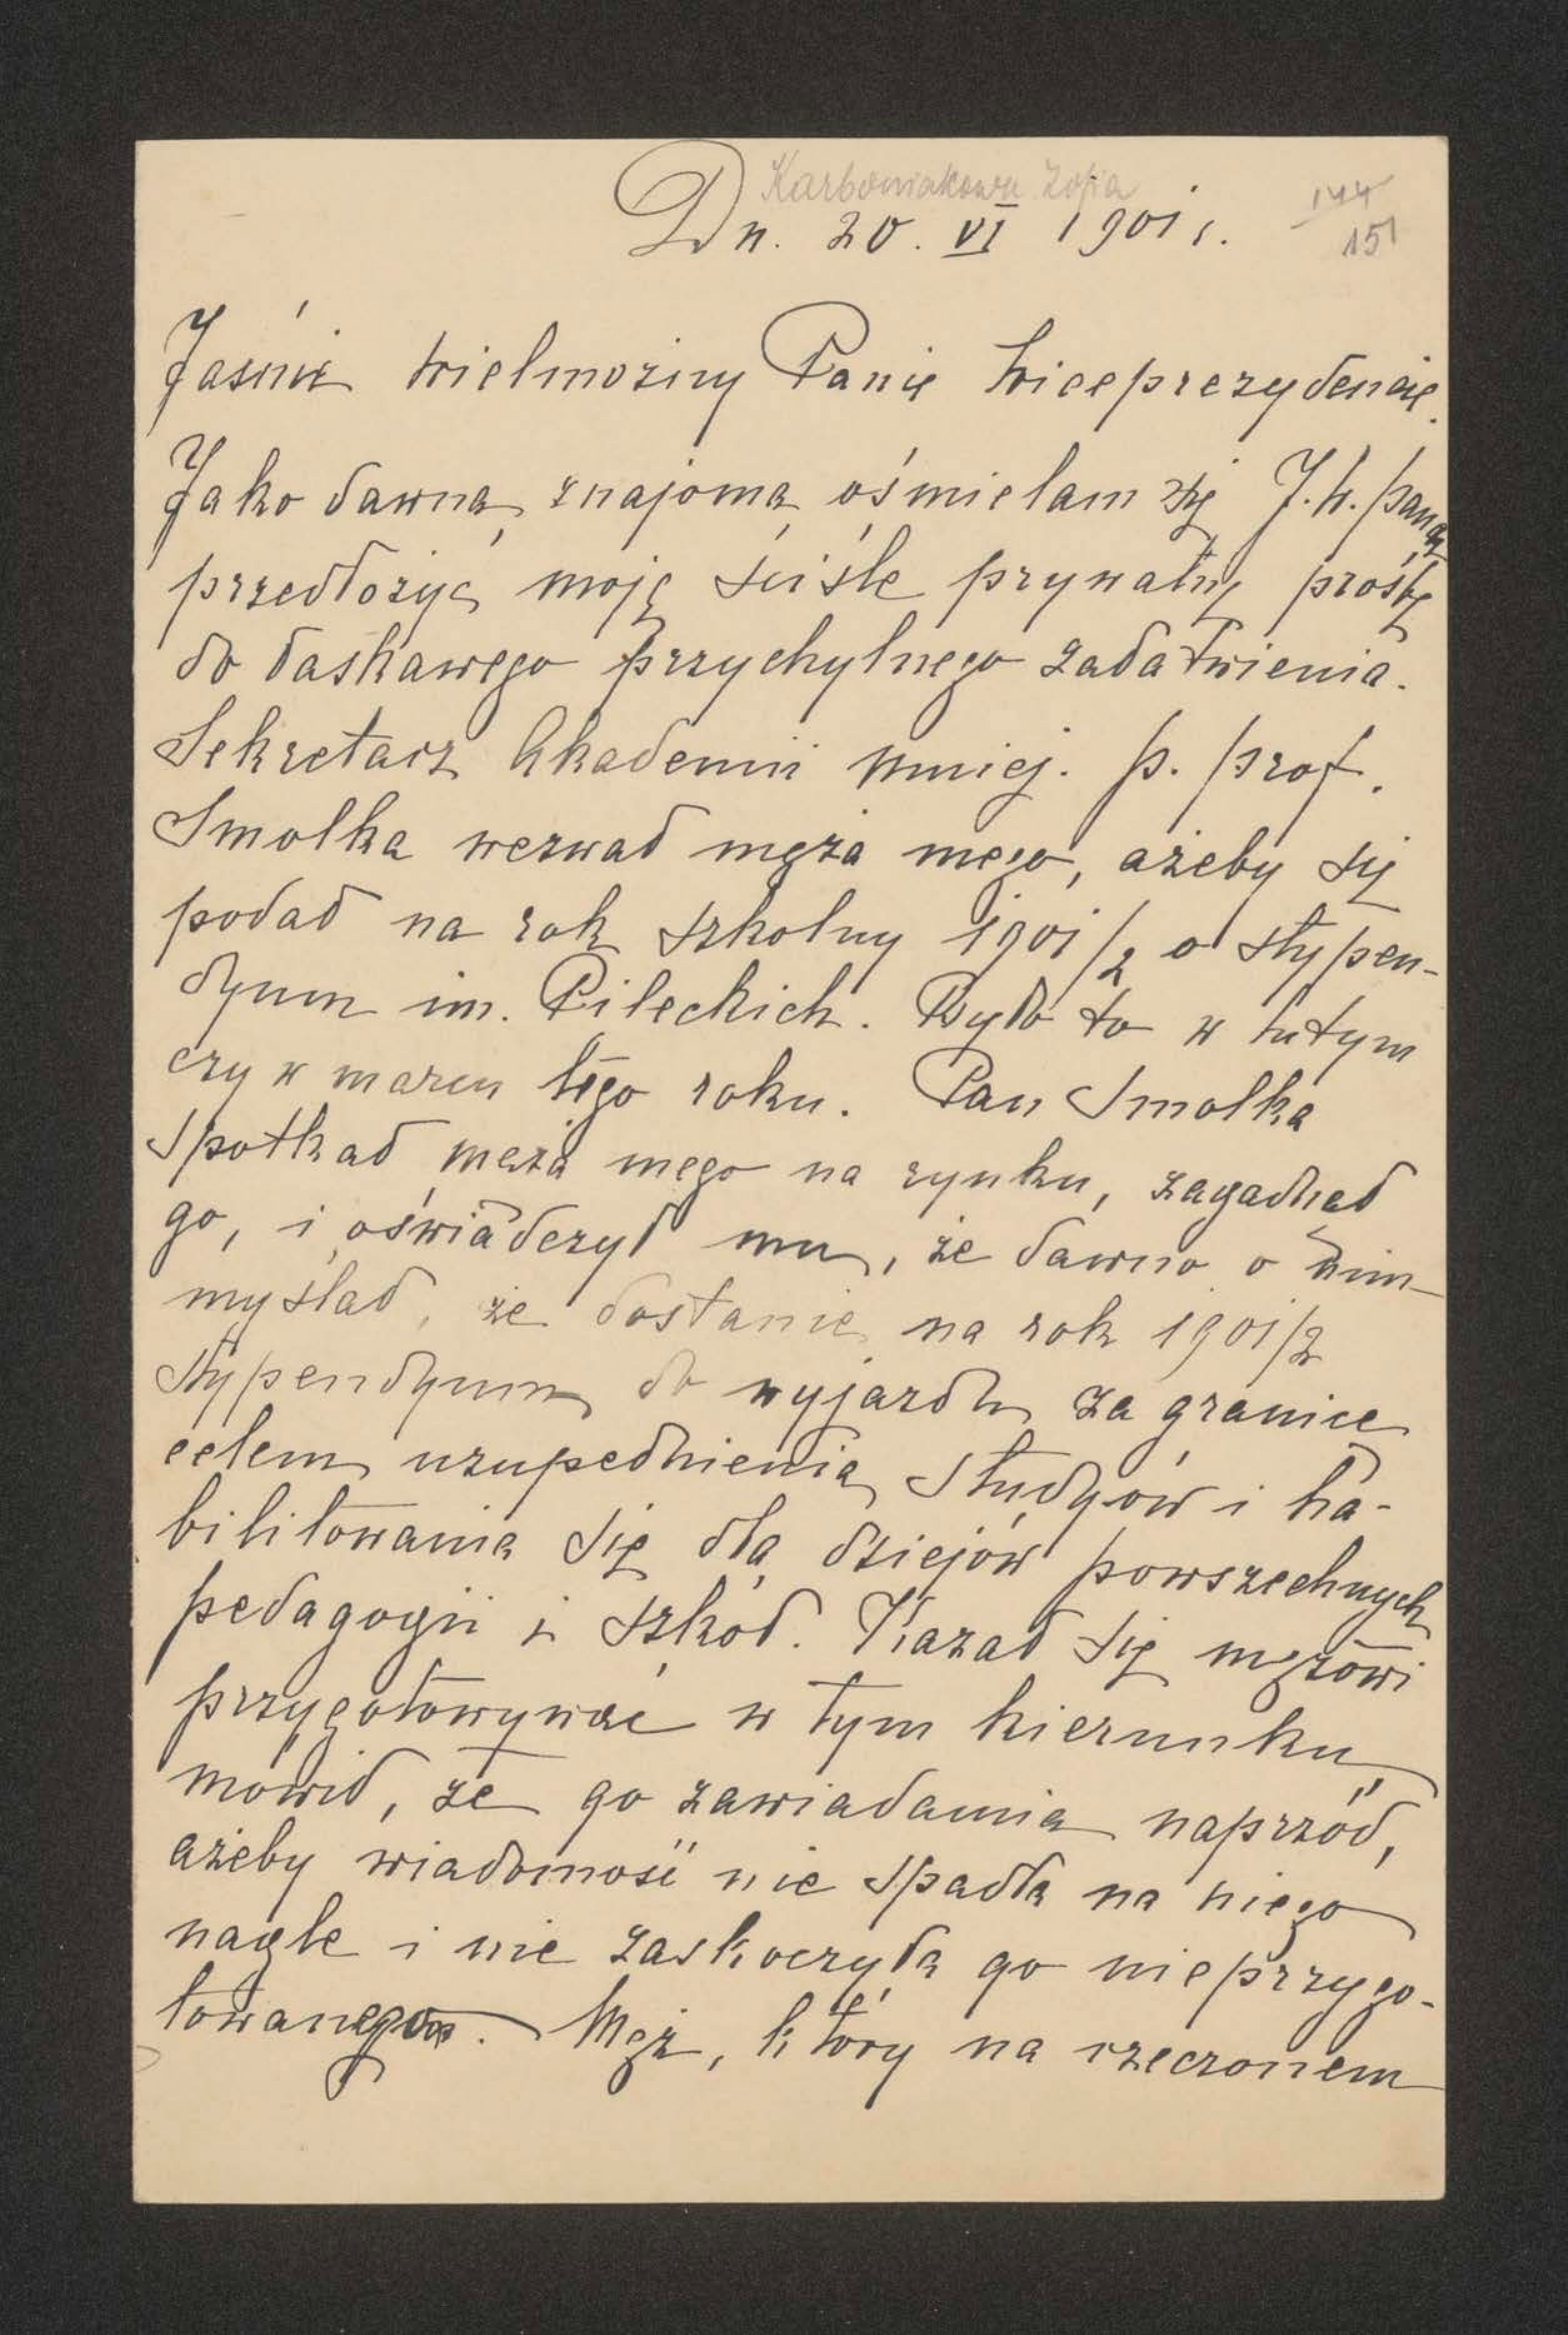 Karbowiakowa Zofia
144
151
Dn. 20. VI 1901 r.
Jaśnie Wielmożny Panie Wiceprezydencie.
Jako dawna znajoma ośmielam się J. W. Panu
przedłożyć moję ściśle prywatną prośbę
do łaskawego przychylnego załatwienia.
Sekretarz Akademii Umiej. p. prof.
Smolka wezwał męża mego, ażeby się
podał na rok szkolny 1901/2 o stypen-
dyum im. Pileckich. Było to w lutym
czy w marcu tego roku. Pan Smolka
spotkał męża mego na rynku, zagadnął
go, i oświadczył mu, że dawno o nim
myślał, że dostanie na rok 1901/2
stypendyum do wyjazdu za granicę
celem uzupełnienia studyów i ha-
bilitowania się dla dziejów powszechnych
pedagogii i szkół. Kazał się mężowi
przygotowywać w tym kierunku,
mówił, że go zawiadamia naprzód,
ażeby wiadomość nie spadła na niego
nagle i nie zaskoczyła go nieprzygo-
towanego. Mąż, który na rzeczonem